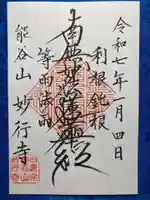 令和七年一月四日
利根鈍根
南無妙法蓮華経
等雨法雨
熊谷山 妙行寺